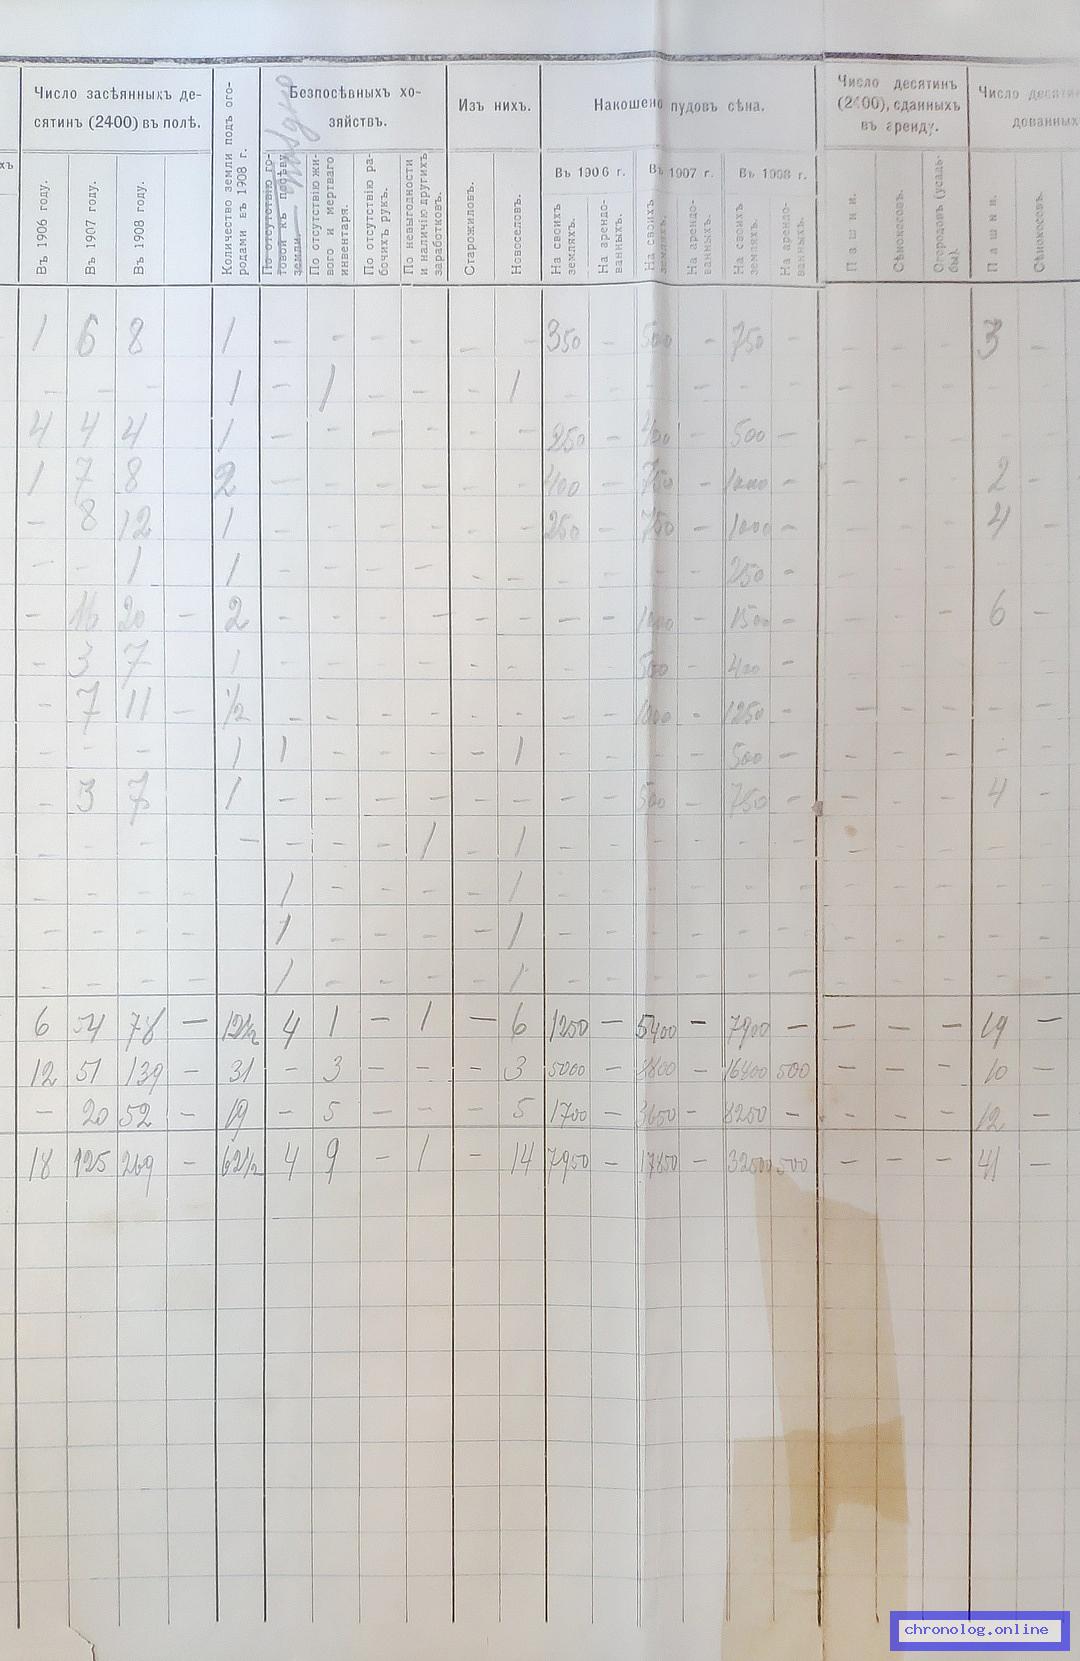 Число засѣянныхъ де-
сятинъ (2400) въ полѣ.
Въ 1906 году.
Въ 1907 году.
Въ 1908 году.
Количество земли подъ ого-
родами въ 1908 г.
Безпосѣвныхъ хо-
зяйствъ.
По отсутствію го-
товой къ посѣву
земли.
По отсутствію жи-
вого и мертваго
инвентаря.
По отсутствію ра-
бочихъ рукъ.
По невыгодности
и наличію другихъ
заработковъ.
Изъ нихъ.
Старожиловъ.
Новоселовъ.
Накошено пудовъ сѣна.
Въ 1906 г. Въ 1907 г. Въ 1908 г.
На своихъ
земляхъ.
На арендо-
ванныхъ.
На своихъ
земляхъ.
На арендо-
ванныхъ.
На своихъ
земляхъ.
На арендо-
ванныхъ.
Число десятинъ
(2400), сданныхъ
въ аренду.
Пашни.
Сѣнокосовъ.
Огородовъ (усадь-
бы).
Число десятин
дованныхъ
Пашни.
Сѣнокосовъ.
1 6 8 1 - - - - - - 350 - 500 - 750 - - - 3 -
- - - 1 - 1 - - - 1 - - - - - - - - - - -
4 4 4 1 - - - - - - 250 - 400 - 500 - - - - - -
1 7 8 2 - - - - - - 400 - 750 - 1000 - - - - 2 -
- 8 12 1 - - - - - - 250 - 750 - 1000 - - - - 4 -
- - 1 1 - - - - - - - - - - 250 - - - - - -
- 16 20 - 2 - - - - - - - - 1000 - 1500 - - - - 6 -
- 3 7 1 - - - - - - - - 500 - 400 - - - - - -
- 7 11 - 1/2 - - - - - - - - 1000 - 1250 - - - - - -
- - - 1 1 - - - - 1 - - - 500 - - - - - -
- 3 7 1 - - - - - - - - 500 - 750 - - - - 4 -
- - - - - - - 1 - 1 - - - - - - - - - - -
- - - - 1 - - - - 1 - - - - - - - - - - -
- - - - 1 - - - - 1 - - - - - - - - - - -
- - - - 1 - - - - 1 - - - - - - - - - - -
6 54 78 - 12 1/2 4 1 - 1 - 6 1250 - 5400 - 7900 - - - - 19 -
12 51 139 - 31 - 3 - - - 3 5000 - 8800 - 16400 500 - - - 10 -
- 20 52 - 19 - 5 - - - 5 1700 - 3650 - 8250 - - - - 12 -
18 125 269 - 62 1/2 4 9 - 1 - 14 7950 - 17850 - 32500 500 - - - 41 -
chronolog.online